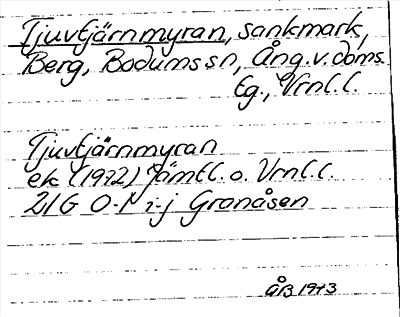 Tjuvtjärnmyran, sankmark,
Berg, Bodums sn, Ång. v. doms.
tg., Vrnl. l.
Tjuvtjärnmyran
ek (1972) Jämtl. o. Vrnl. l.
21G O-N i-j Granåsen
ÅB 1973